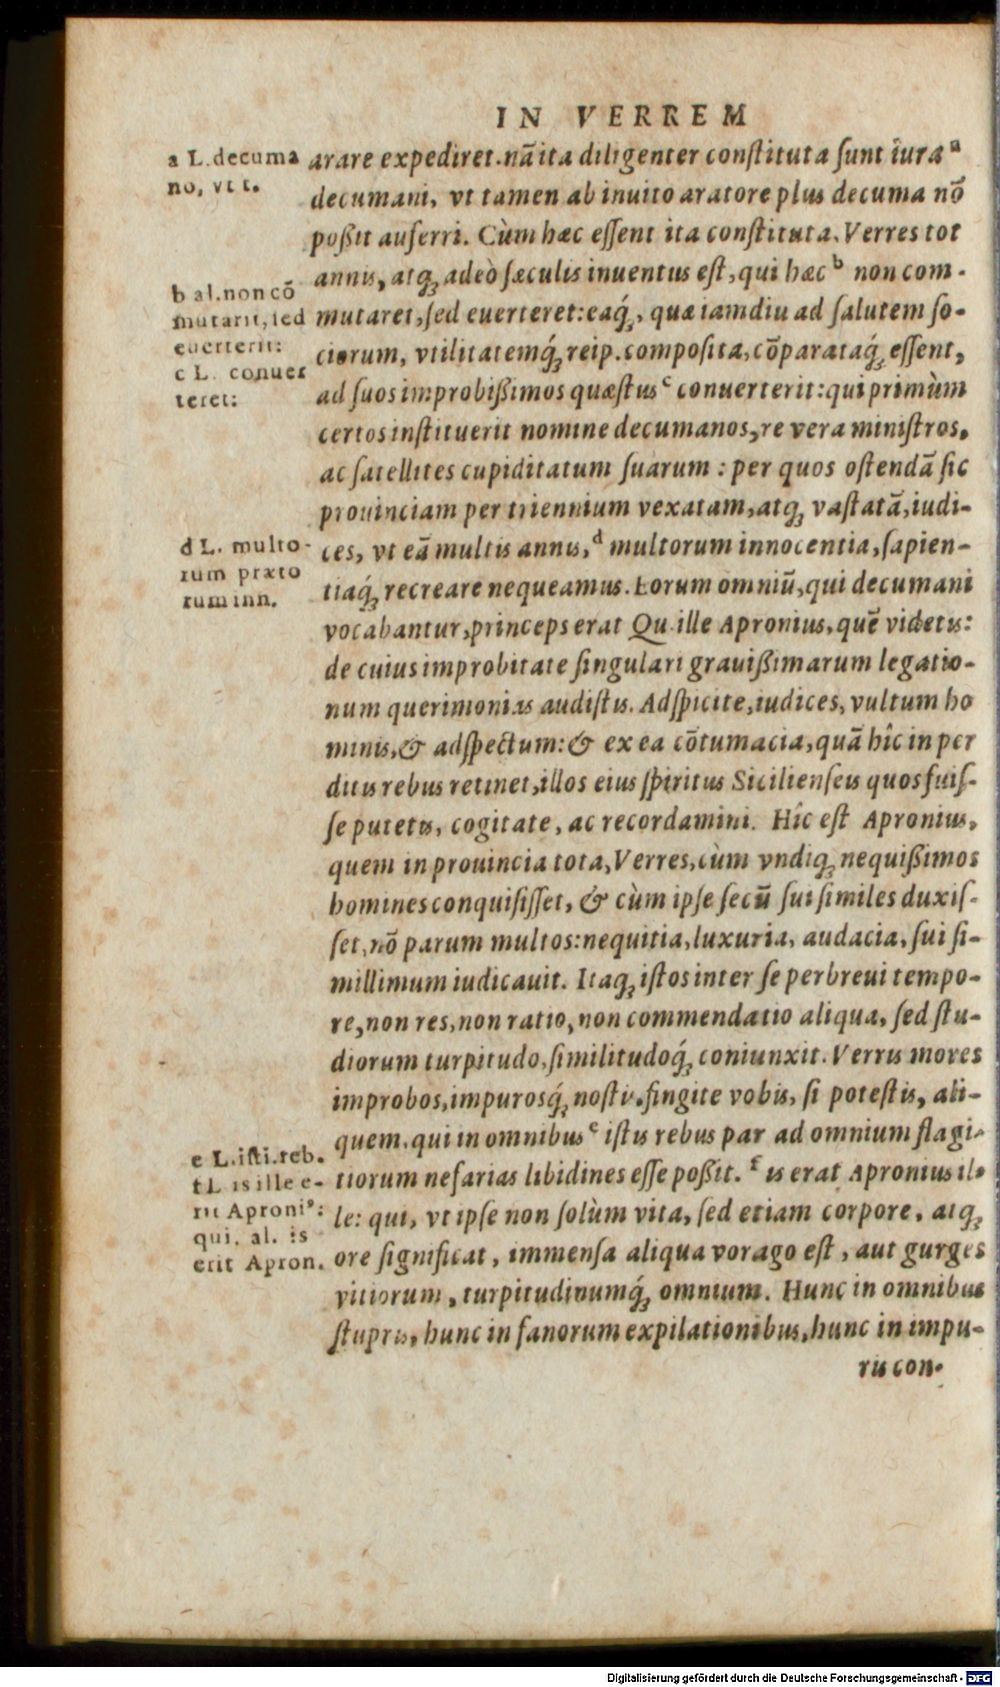 IN VERREM
a L. decuma
no, vt t.
arare expediret. nā ita diligenter constituta sunt iura ᵃ
decumani, vt tamen ab inuito aratore plus decuma nō
poßit auferri. Cùm hæc essent ita constituta, Verres tot
annis, atq; adeò sæculis inuentus est, qui hæc ᵇ non com-
mutaret, sed euerteret: eaq́;, quæ iamdiu ad salutem so-
ciorum, vtilitatemq́; reip. composita, cōparataq́; essent,
ad suos improbißimos quæstus ᶜ conuerterit: qui primùm
certos instituerit nomine decumanos, re vera ministros,
ac satellites cupiditatum suarum: per quos ostendā sic
prouinciam per triennium vexatam, atq; vastatā, iudi-
ces, vt eā multis annis, ᵈ multorum innocentia, sapien-
tiaq́; recreare nequeamus. Eorum omniū, qui decumani
vocabantur, princeps erat Qu. ille Apronius, quē videtis:
de cuius improbitate singulari grauißimarum legatio-
num querimonias audistis. Adspicite, iudices, vultum ho
minis, & adspectum: & ex ea cōtumacia, quā hîc in per
ditis rebus retinet, illos eius spiritus Sicilienseis quos fuis-
se putetis, cogitate, ac recordamini. Hîc est Apronius,
quem in prouincia tota, Verres, cùm vndiq; nequißimos
homines conquisisset, & cùm ipse secū sui similes duxis-
set, nō parum multos: nequitia, luxuria, audacia, sui si-
millimum iudicauit. Itaq; istos inter se perbreui tempo-
re, non res, non ratio, non commendatio aliqua, sed stu-
diorum turpitudo, similitudoq́; coniunxit. Verris mores
improbos, impurosq́; nostis. fingite vobis, si potestis, ali-
quem, qui in omnibus ᵉ istis rebus par ad omnium flagi-
tiorum nefarias libidines esse poßit. ᶠ is erat Apronius il-
le: qui, vt ipse non solùm vita, sed etiam corpore, atq;
ore significat, immensa aliqua vorago est, aut gurges
vitiorum, turpitudinumq́; omnium. Hunc in omnibus
stupris, hunc in fanorum expilationibus, hunc in impu-
ris con-
b al. non cō
mutarit, sed
euerterit:
c L. conuer
teret:
d L. multo-
rum præto
rum inn.
e L. isti. reb.
f L. is ille e-
rit Aproniꝰ:
qui, al. is
erit Apron.
Digitalisierung gefördert durch die Deutsche Forschungsgemeinschaft - DFG